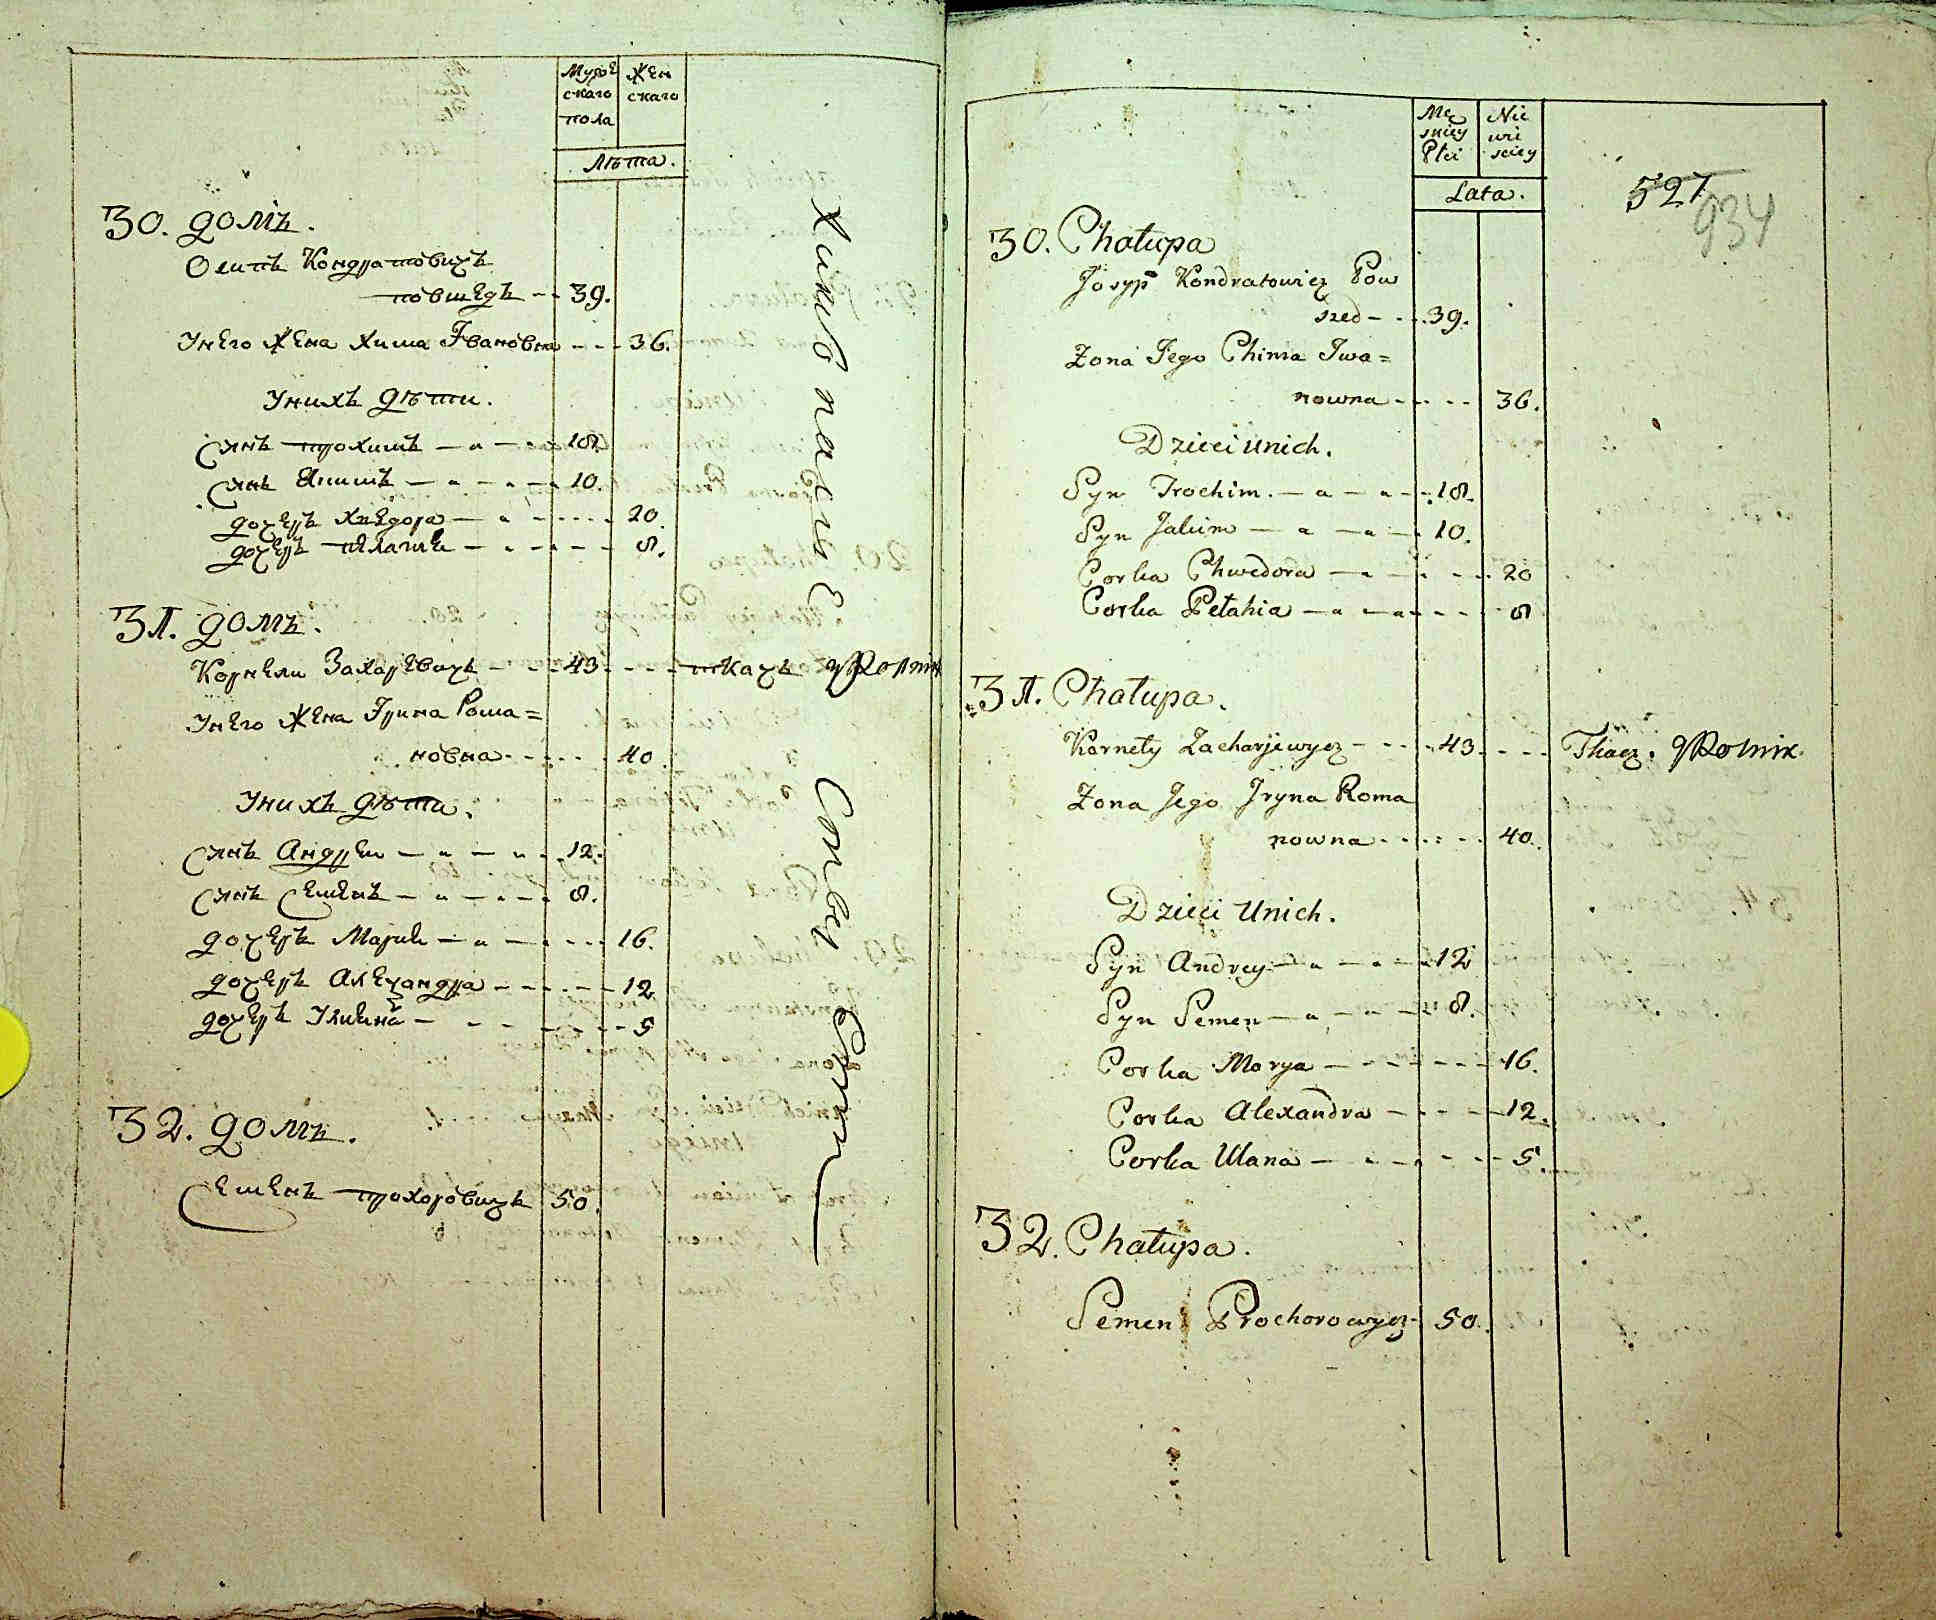 Мужескаго пола
Женскаго
Лѣта.
30. домъ.
Осипъ Кондратовичъ
повшедъ - - 39.
У него жена Хима Ивановна - - - 36.
У нихъ дѣти.
Сынъ Трохимъ 18.
Сынъ Якимъ 10.
дочерь Хведора 20.
дочерь Пелагия 8.
31. домъ.
Корнели Захаревичъ - - - 43. - - - ткачъ Rolnik
У него жена Ирина Рома=
новна - - - 40.
У нихъ дѣти.
Сынъ Андрей 12.
Сынъ Семенъ 8.
дочерь Мария 16.
дочерь Александра 12
дочерь Улияна 5
32. домъ.
Семенъ Прохоровичъ 50.
Męskiey Płci
Niewieściey
Lata.
527
934
30. Chałupa
Josyp Kondratowicz Pow
szed - - - 39.
Zona Jego Chima Iwa=
nowna - - - - 36.
Dzieci u nich.
Syn Trochim. 18.
Syn Jakim 10.
Corka Chwedora 20
Corka Pełahia 8
31. Chałupa.
Kornely Zacharjewycz - - - 43. - - - Tkacz. Rolnik.
Zona Jego Jryna Roma
nowna - - - - 40.
Dzieci u nich.
Syn Andrey 12
Syn Semen 8.
Corka Marya 16.
Corka Alexandra 12.
Corka Ulana 5.
32. Chałupa.
Semen Prochorowycz 50.